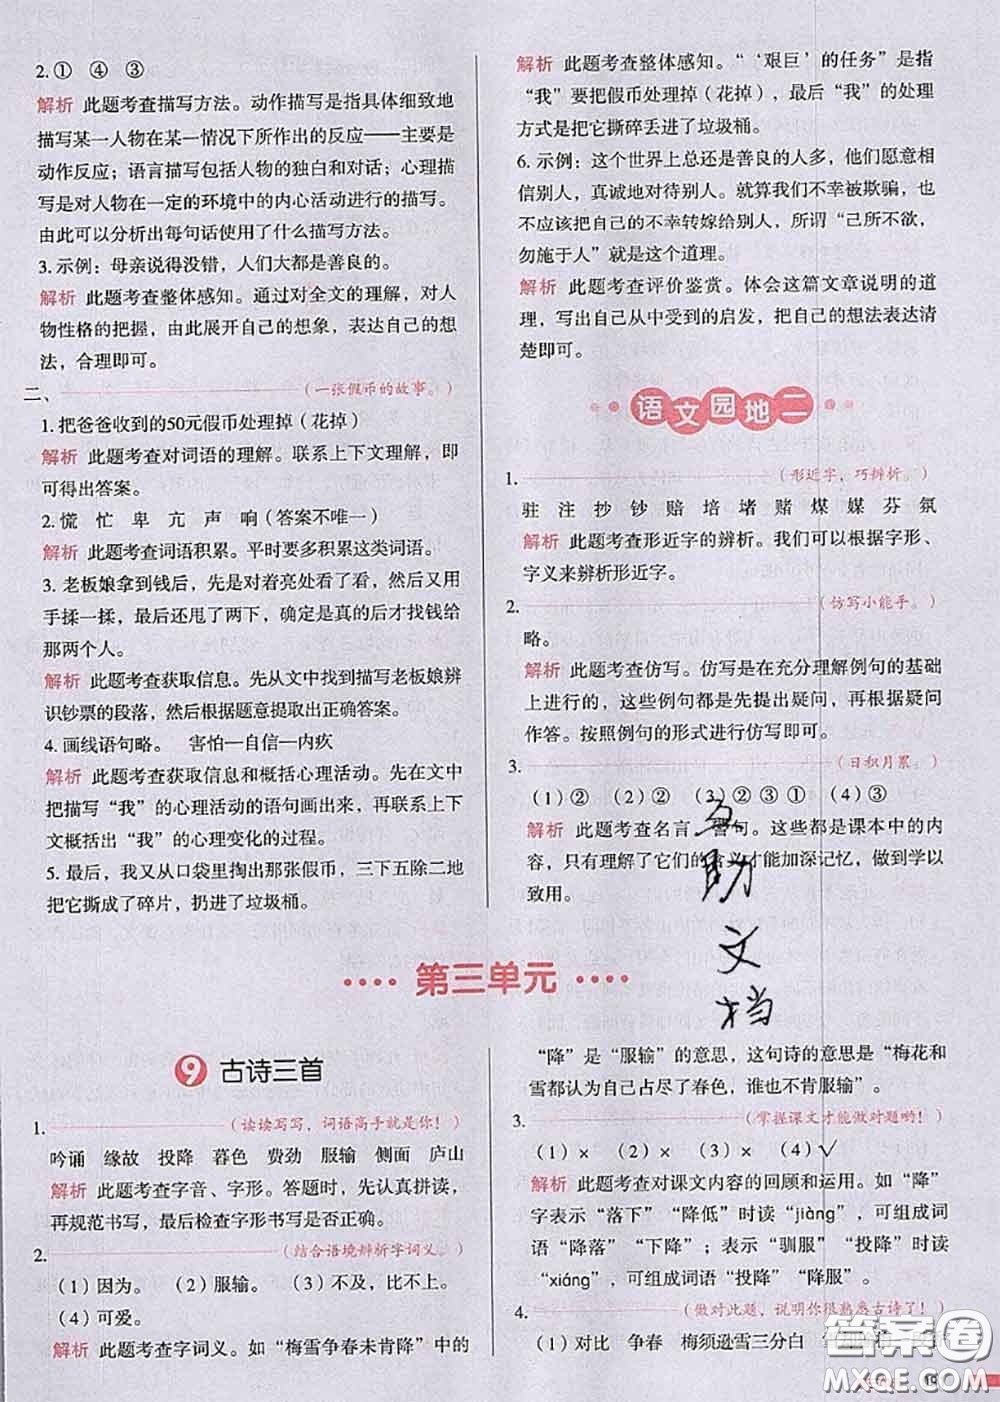 2. ① ④ ③
解析 此题考查描写方法。动作描写是指具体细致地
描写某一人物在某一情况下所作出的反应——主要是
动作反应；语言描写包括人物的独白和对话；心理描
写是对人物在一定的环境中的内心活动进行的描写。
由此可以分析出每句话使用了什么描写方法。
3. 示例：母亲说得没错，人们大都是善良的。
解析 此题考查整体感知。通过对全文的理解，对人
物性格的把握，由此展开自己的想象，表达自己的想
法，合理即可。
二、（一张假币的故事。）
1. 把爸爸收到的50元假币处理掉（花掉）
解析 此题考查对词语的理解。联系上下文理解，即
可得出答案。
2. 慌 忙 卑 亢 声 响（答案不唯一）
解析 此题考查词语积累。平时要多积累这类词语。
3. 老板娘拿到钱后，先是对着亮处看了看，然后又用
手揉一揉，最后还甩了两下，确定是真的后才找钱给
那两个人。
解析 此题考查获取信息。先从文中找到描写老板娘辨
识钞票的段落，然后根据题意提取出正确答案。
4. 画线语句略。 害怕—自信—内疚
解析 此题考查获取信息和概括心理活动。先在文中
把描写“我”的心理活动的语句画出来，再联系上下
文概括出“我”的心理变化的过程。
5. 最后，我又从口袋里掏出那张假币，三下五除二地
把它撕成了碎片，扔进了垃圾桶。
解析 此题考查整体感知。“‘艰巨’的任务”是指
“我”要把假币处理掉（花掉），最后“我”的处理
方式是把它撕碎丢进了垃圾桶。
6. 示例：这个世界上总还是善良的人多，他们愿意相
信别人，真诚地对待别人。就算我们不幸被欺骗，也
不应该把自己的不幸转嫁给别人，所谓“己所不欲，
勿施于人”就是这个道理。
解析 此题考查评价鉴赏。体会这篇文章说明的道
理，写出自己从中受到的启发，把自己的想法表达清
楚即可。
语文园地二
1.（形近字，巧辨析。）
驻 注 抄 钞 赔 培 堵 赌 煤 媒 芬 氛
解析 此题考查形近字的辨析。我们可以根据字形、
字义来辨析形近字。
2.（仿写小能手。）
略。
解析 此题考查仿写。仿写是在充分理解例句的基础
上进行的，这些例句都是先提出疑问，再根据疑问
作答。按照例句的形式进行仿写即可。
3.（日积月累。）
（1）② （2）② （3）② ③ ① （4）③
解析 此题考查名言、警句。这些都是课本中的内
容，只有理解了它们的含义才能加深记忆，做到学以
致用。
互助文档
第三单元
9 古诗三首
1.（读读写写，词语高手就是你！）
吟诵 缘故 投降 暮色 费劲 服输 侧面 庐山
解析 此题考查字音、字形。答题时，先认真拼读，
再规范书写，最后检查字形书写是否正确。
2.（结合语境辨析字词义。）
（1）因为。 （2）服输。 （3）不及，比不上。
（4）可爱。
解析 此题考查字词义。如“梅雪争春未肯降”中的
“降”是“服输”的意思，这句诗的意思是“梅花和
雪都认为自己占尽了春色，谁也不肯服输”。
3.（掌握课文才能做对题哟！）
（1）× （2）× （3）× （4）√
解析 此题考查对课文内容的回顾和运用。如“降”
字表示“落下”“降低”时读“jiàng”，可组成词
语“降落”“下降”；表示“驯服”“投降”时读
“xiáng”，可组成词语“投降”“降服”。
4.（做对此题，说明你很熟悉古诗了！）
（1）对比 争春 梅须逊雪三分白
答案圈
MXQE.COM